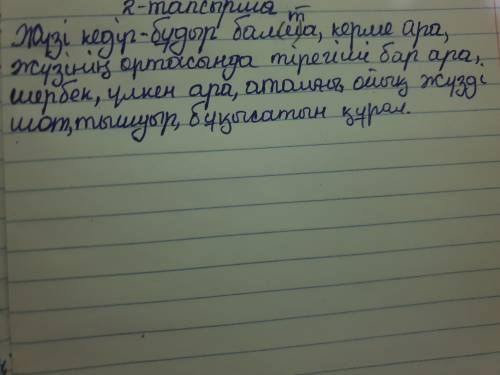 2-тапсырма
Жүзі кедір-бұдыр балта, керме ара,
жүзінің ортасында тірегіші бар ара,
шербек, үлкен ара, аталғы, ойық жүзді
шот, тышуыр, бұқысатын құрал.